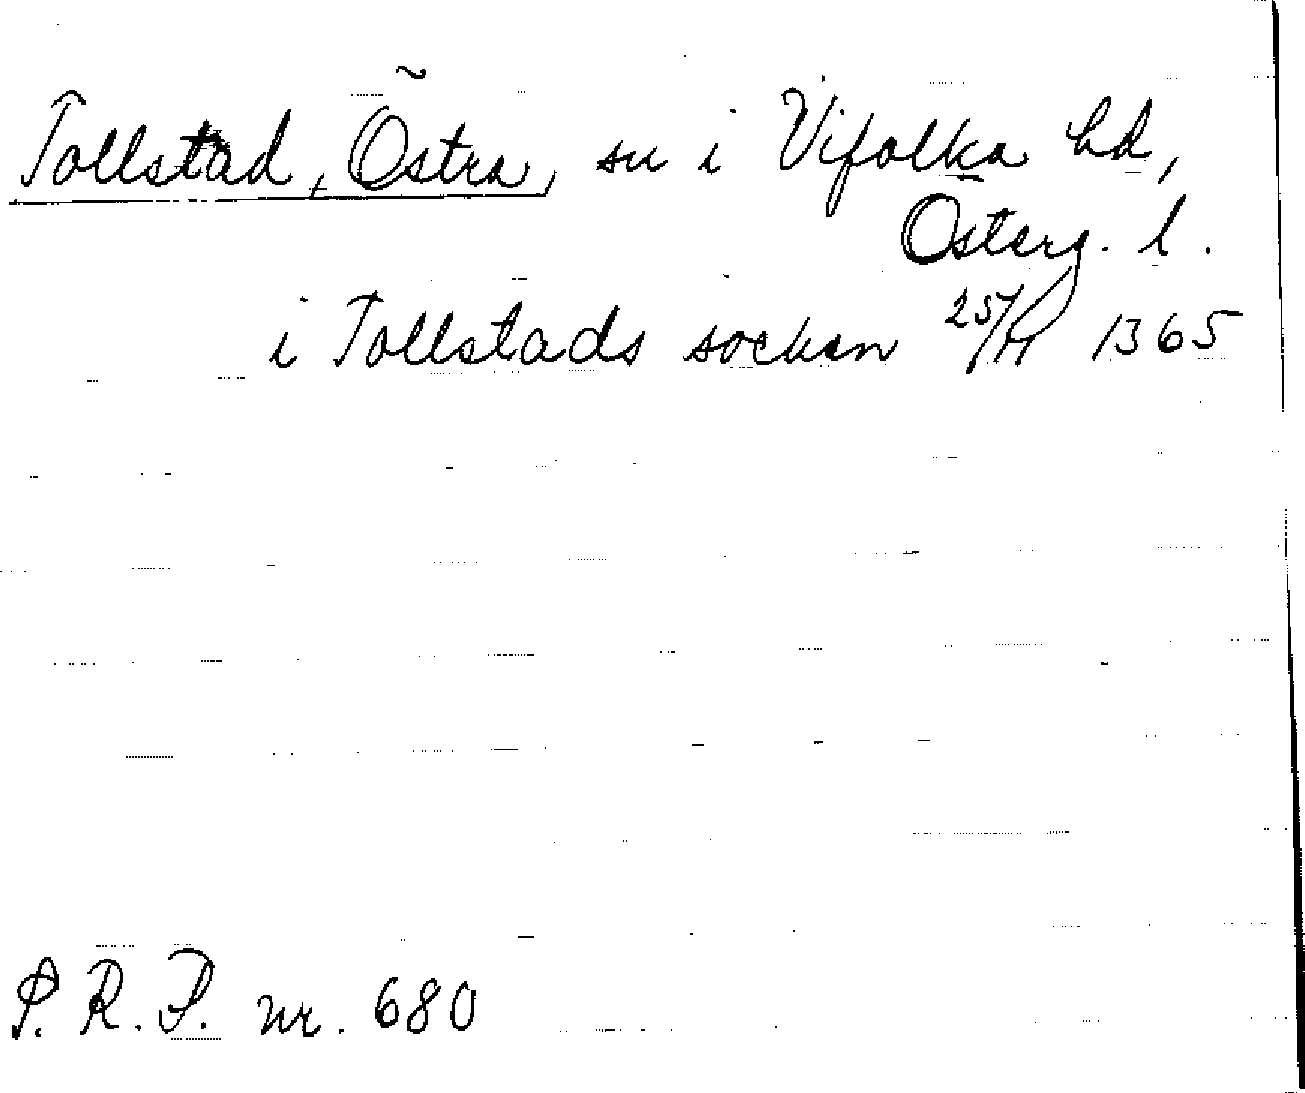 Tollstad, Östra, sn i Vifolka hd,
Österg. l.
i Tollstads socken 25/11 1365
S. R. P. nr. 680